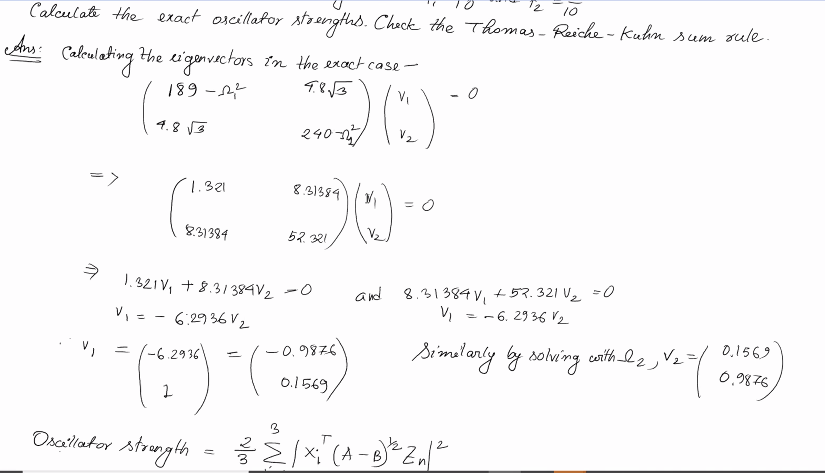 Calculate the exact oscillator strengths. Check the Thomas-Reiche-Kuhn sum rule.
Ans: Calculating the eigenvectors in the exact case —
( 189 - Ω₁² 4.8√3 ) ( V₁ ) = 0
( 4.8√3 240-Ω₁² ) ( V₂ )
=> ( 1.321 8.31384 ) ( V₁ ) = 0
( 8.31384 52.321 ) ( V₂ )
⇒ 1.321V₁ + 8.31384V₂ = 0 and 8.31384V₁ + 52.321V₂ = 0
V₁ = - 6.2936V₂ V₁ = -6.2936V₂
∴ V₁ = ( -6.2936 ) = ( -0.9876 ) Similarly by solving with Ω₂, V₂ = ( 0.1569 )
( 1 ) ( 0.1569 ) ( 0.9876 )
Oscillator strength = 2/3 Σ³ | Xᵢᵀ (A - B)^½ Zₙ |²